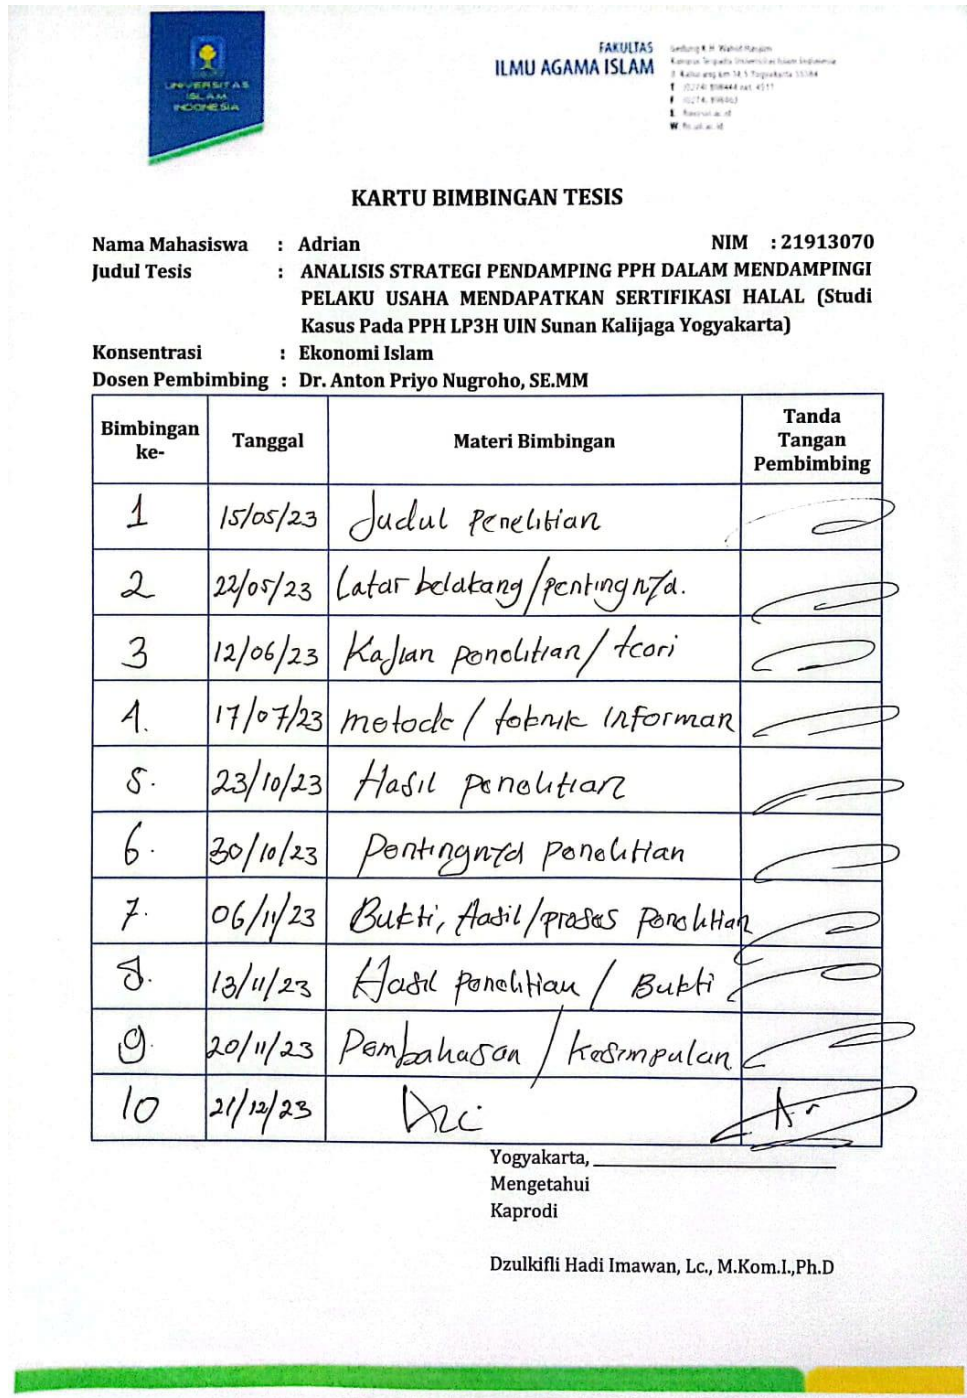 UNIVERSITAS
ISLAM
INDONESIA
FAKULTAS
ILMU AGAMA ISLAM
Gedung K.H. Wahid Hasyim
Kampus Terpadu Universitas Islam Indonesia
Jl. Kaliurang km 14,5 Yogyakarta 55584
T
F
E
W
KARTU BIMBINGAN TESIS
Nama Mahasiswa : Adrian NIM : 21913070
Judul Tesis : ANALISIS STRATEGI PENDAMPING PPH DALAM MENDAMPINGI
PELAKU USAHA MENDAPATKAN SERTIFIKASI HALAL (Studi
Kasus Pada PPH LP3H UIN Sunan Kalijaga Yogyakarta)
Konsentrasi : Ekonomi Islam
Dosen Pembimbing : Dr. Anton Priyo Nugroho, SE.MM
Bimbingan ke- Tanggal Materi Bimbingan Tanda Tangan Pembimbing
1 15/05/23 Judul Penelitian
2 22/05/23 Latar belakang/pentingnya.
3 12/06/23 Kajian penelitian/ teori
4. 17/07/23 metode / teknik informan
5. 23/10/23 Hasil penelitian
6. 30/10/23 Pentingnya penelitian
7. 06/11/23 Bukti, Hasil/proses penelitian
8. 13/11/23 Hasil penelitian / Bukti
9. 20/11/23 Pembahasan / kesimpulan
10 21/12/23
Yogyakarta,
Mengetahui
Kaprodi
Dzulkifli Hadi Imawan, Lc., M.Kom.I.,Ph.D